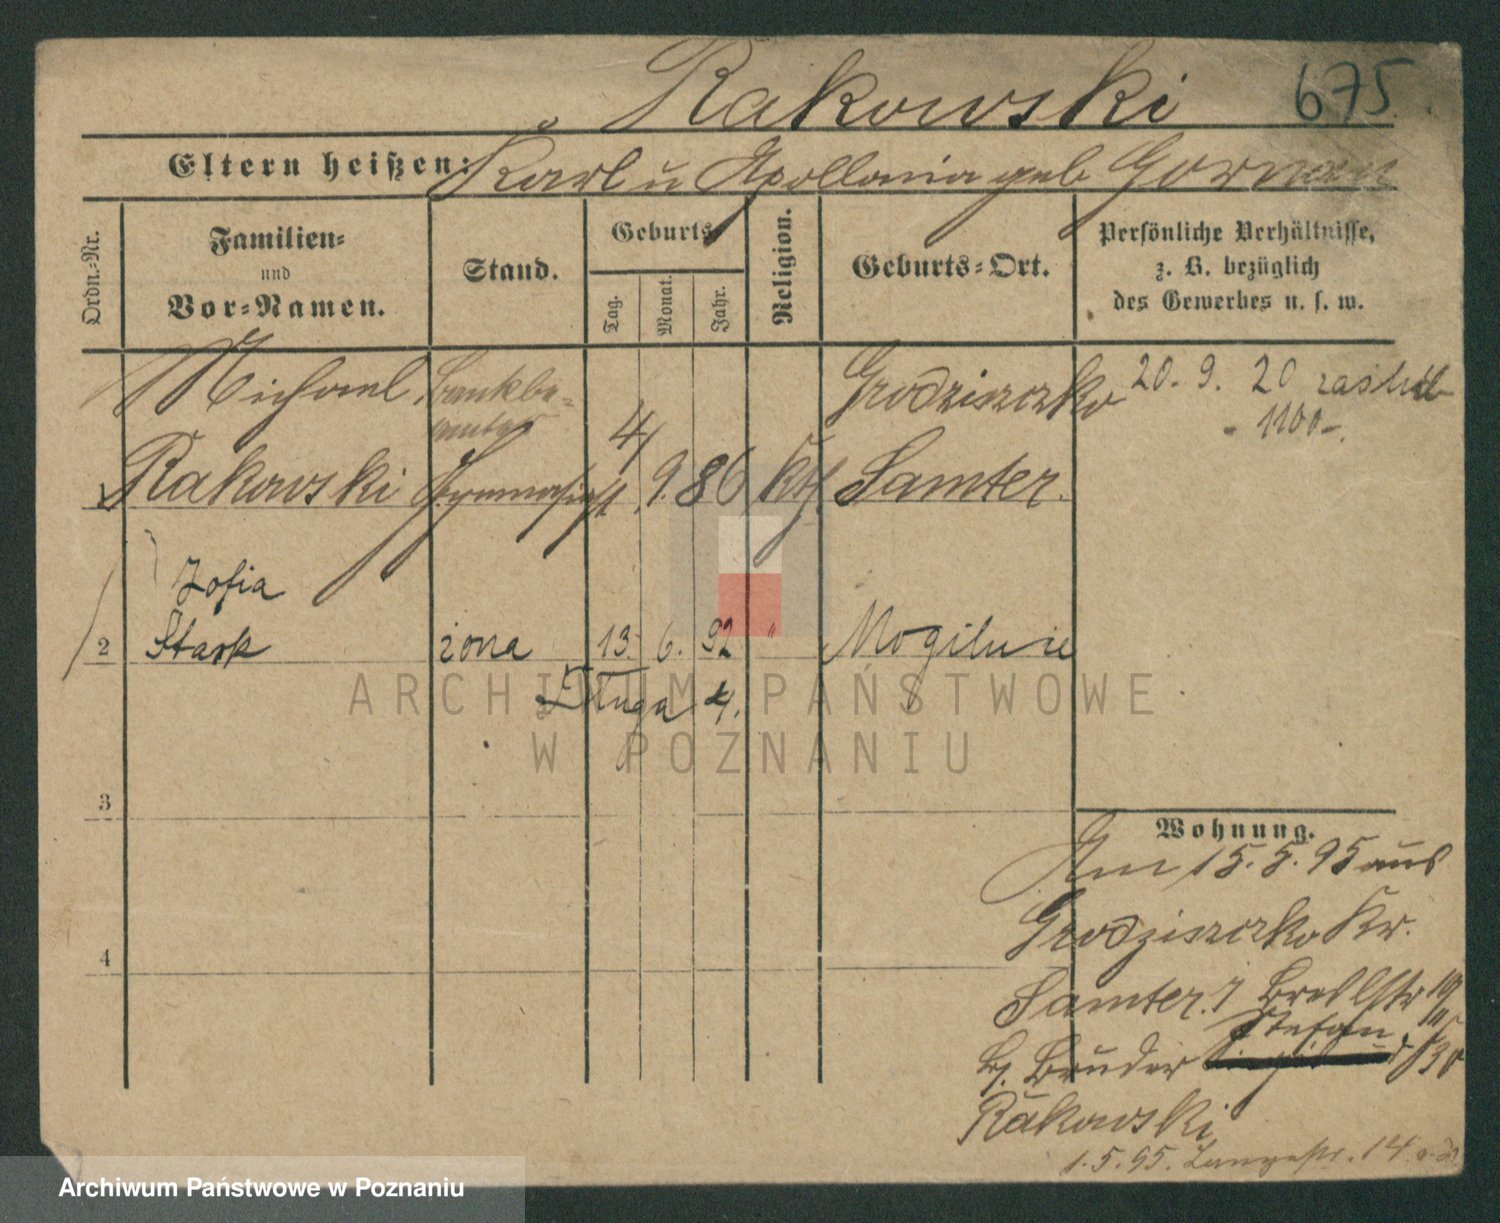 Rakowski 675
Eltern heißen: Karl u Apollonia geb Gorn
Ordn.-Nr.
Familien-
und
Vor-Namen.
Stand.
Geburts
Tag.
Monat.
Jahr.
Religion.
Geburts-Ort.
Persönliche Verhältnisse,
z. B. bezüglich
des Gewerbes u. s. w.
Michael Bankbe- Grodziszczko 20. 9. 20
amter - 1100 -.
1 Rakowski Gymnasiast 4 9. 86 kth Samter.
Zofia
2 Stark żona 13. 6. 92 " Mogilnie
Długa 4.
3
Wohnung.
Am 15. 5. 95 aus
Grodziszczko Kr.
4
Samter.
Stefan
b. Bruder
Rakowski
1. 5. 95. Langestr. 14
ARCHIWUM PAŃSTWOWE
W POZNANIU
Archiwum Państwowe w Poznaniu